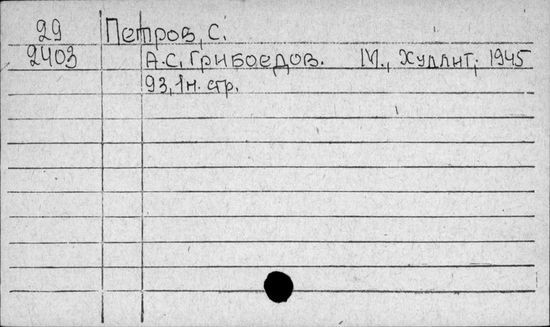 29 Петров, С.
2403 А.С. Грибоедов. М., Худлит, 1945
93, 1 н. стр.